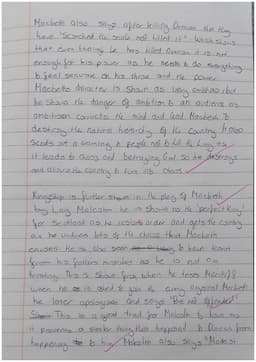 Macbeth also says after killing Duncan that they
have "Scorched the snake not killed it" which shows
that even though he has killed Duncan it is not
enough for his power as he needs to do everything
to feel secure on his throne and the power
Macbeth's character is shown as very ambitious but
he shows the danger of ambition to an audience as
ambition corrupts the mind and lead Macbeth to
destroy the natural of the country. It also
as a warning to people not to kill the king as
it leads to chaos and betraying God so he destroys
and the country to live in chaos.
Kingship is further shown in the play of Macbeth
by King Malcolm he is shown as the 'perfect King'
for Scotland as he restores order and gets the country
as he undoes lots of the chaos that Macbeth
caused. He is also seen to have learnt
from his fathers mistakes as he is not as
trusting. This is shown from when he tests Macduff
when he is to join his army against Macbeth
he later apologises and says "Be not offended"
This is a good trait for Malcolm to have as
it prevents a similar thing that happened to Duncan from
happening to him. Malcolm also says